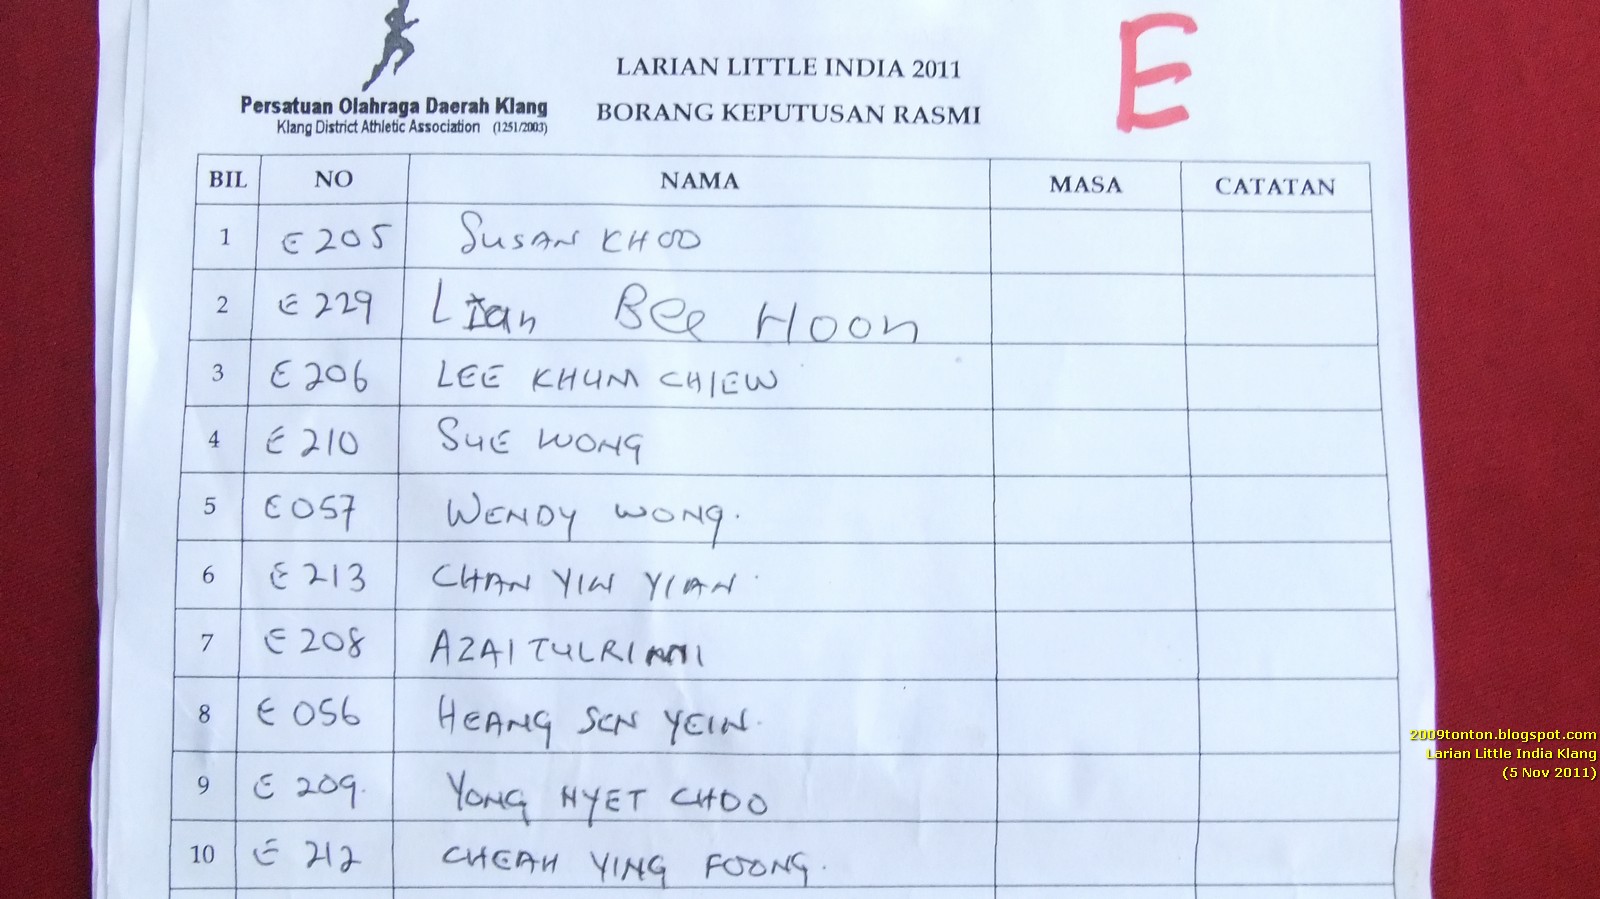 LARIAN LITTLE INDIA 2011
E
Persatuan Olahraga Daerah Klang
BORANG KEPUTUSAN RASMI
Klang District Athletic Association (1251/2003)
BIL NO NAMA MASA CATATAN
1 E 205 SUSAN KHOO
2 E 229 LIan Bee Hoon
3 E 206 LEE KHUM CHIEW
4 E 210 SUE WONG
5 E 057 WENDY WONG.
6 E 213 CHAN YIN YIAN
7 E 208 AZAITULRIANI
8 E 056 HEANG SEN YEIN.
9 E 209. YONG NYET CHOO
10 E 212 CHEAH YING FOONG.
2009tonton.blogspot.com
Larian Little India Klang
(5 Nov 2011)